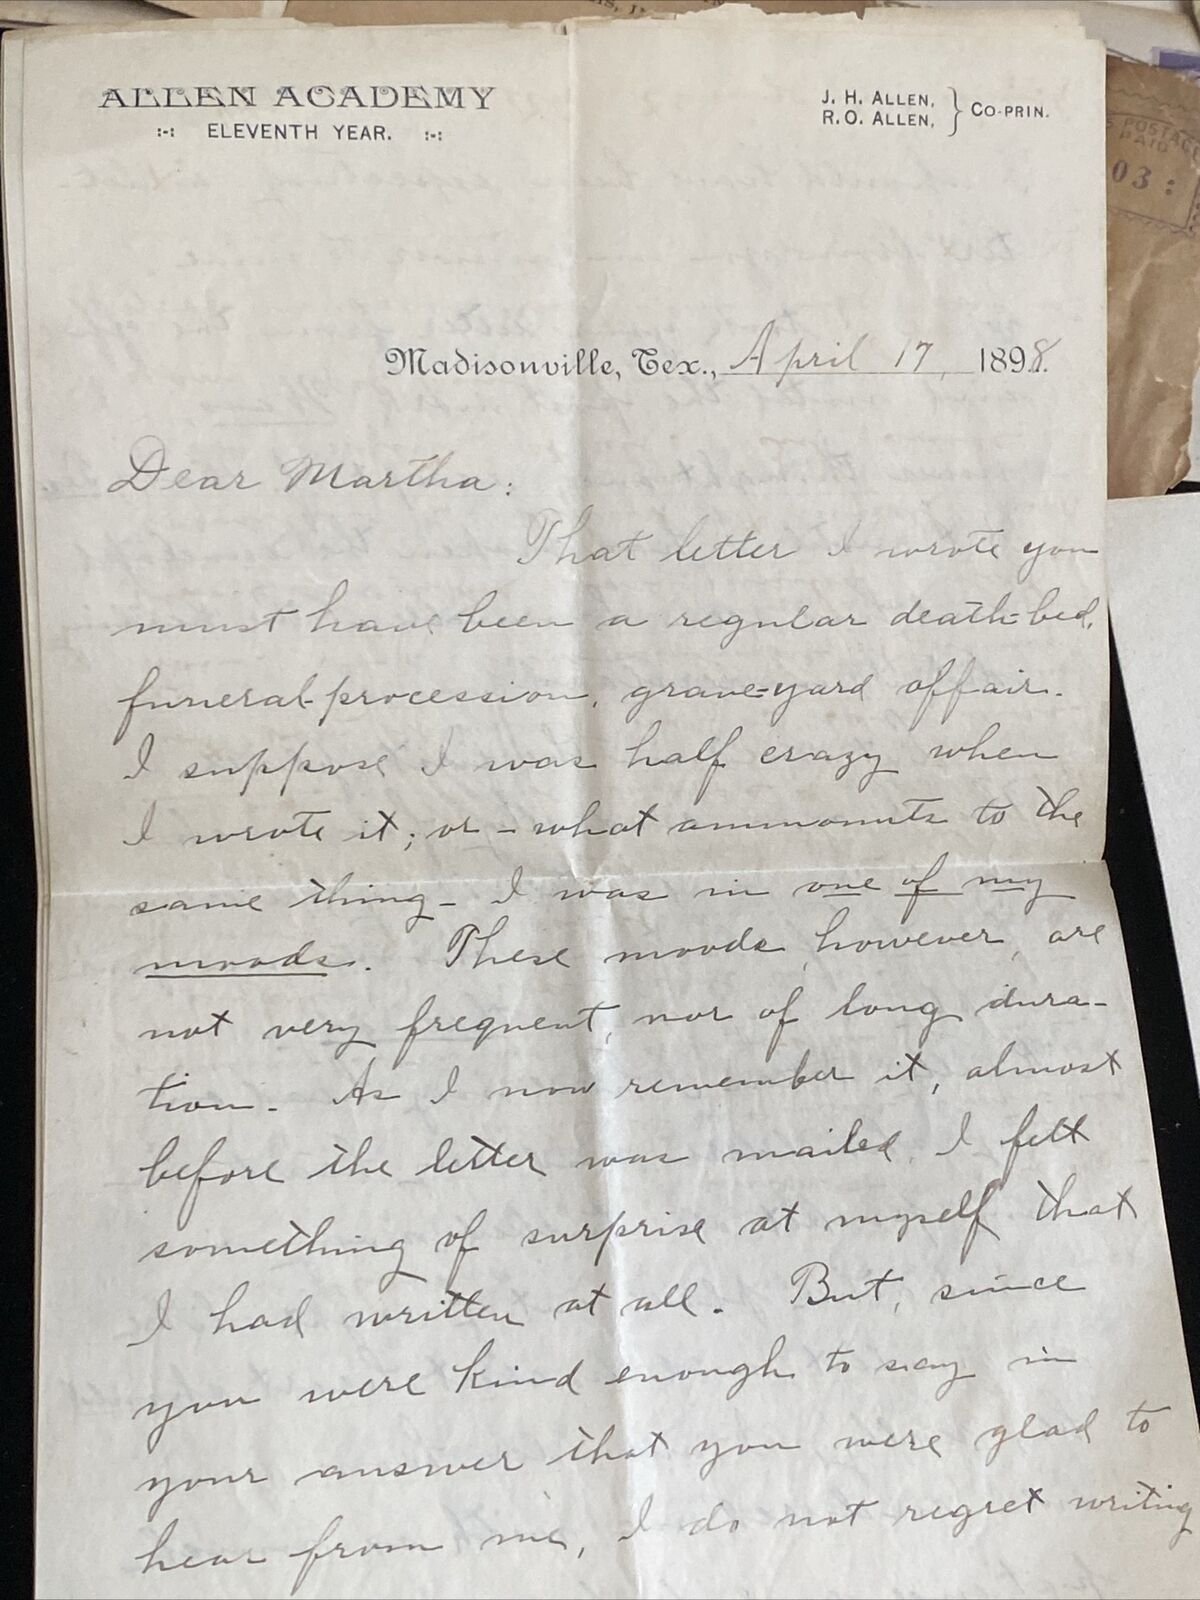 ALLEN ACADEMY
:-: ELEVENTH YEAR. :-:
J. H. ALLEN,
R. O. ALLEN,
} CO-PRIN.
POSTAGE
PAID
03 :
Madisonville, Tex., April 17, 1898.
Dear Martha:
That letter I wrote you
must have been a regular death-bed,
funeral-procession, grave-yard affair.
I suppose I was half crazy when
I wrote it; or - what ammounts to the
same thing - I was in one of my
moods. These moods, however, are
not very frequent, nor of long dura-
tion. As I now remember it, almost
before the letter was mailed I felt
something of surprise at myself that
I had written at all. But, since
you were kind enough to say in
your answer that you were glad to
hear from me, I do not regret writing